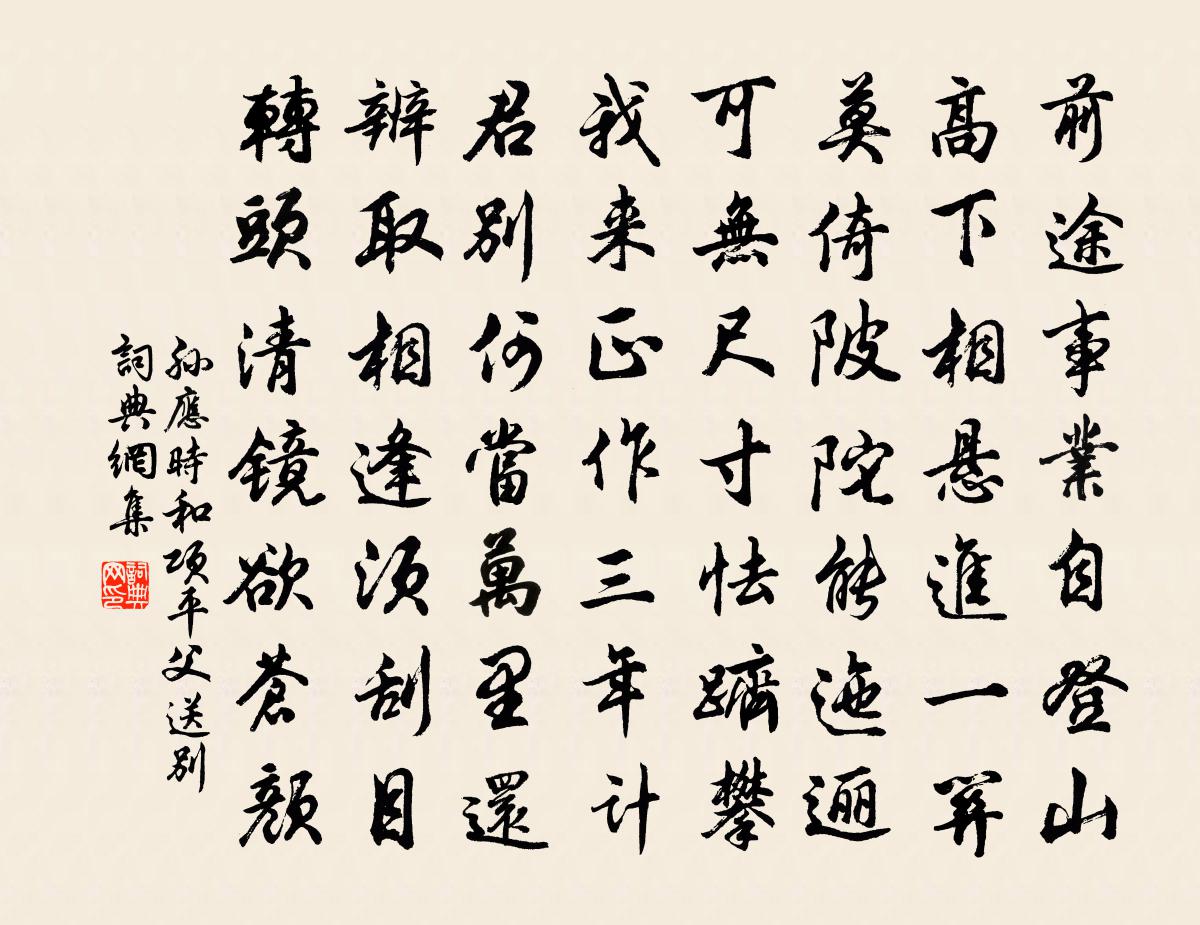 前途事業自登山
高下相懸進一關
莫倚陂陀能迤邐
可無尺寸怯躋攀
我来正作三年計
君別何當萬里還
辦取相逢須刮目
轉頭清鏡欲蒼顏
孫應時和項平父送別
詞典網集
詞典网印